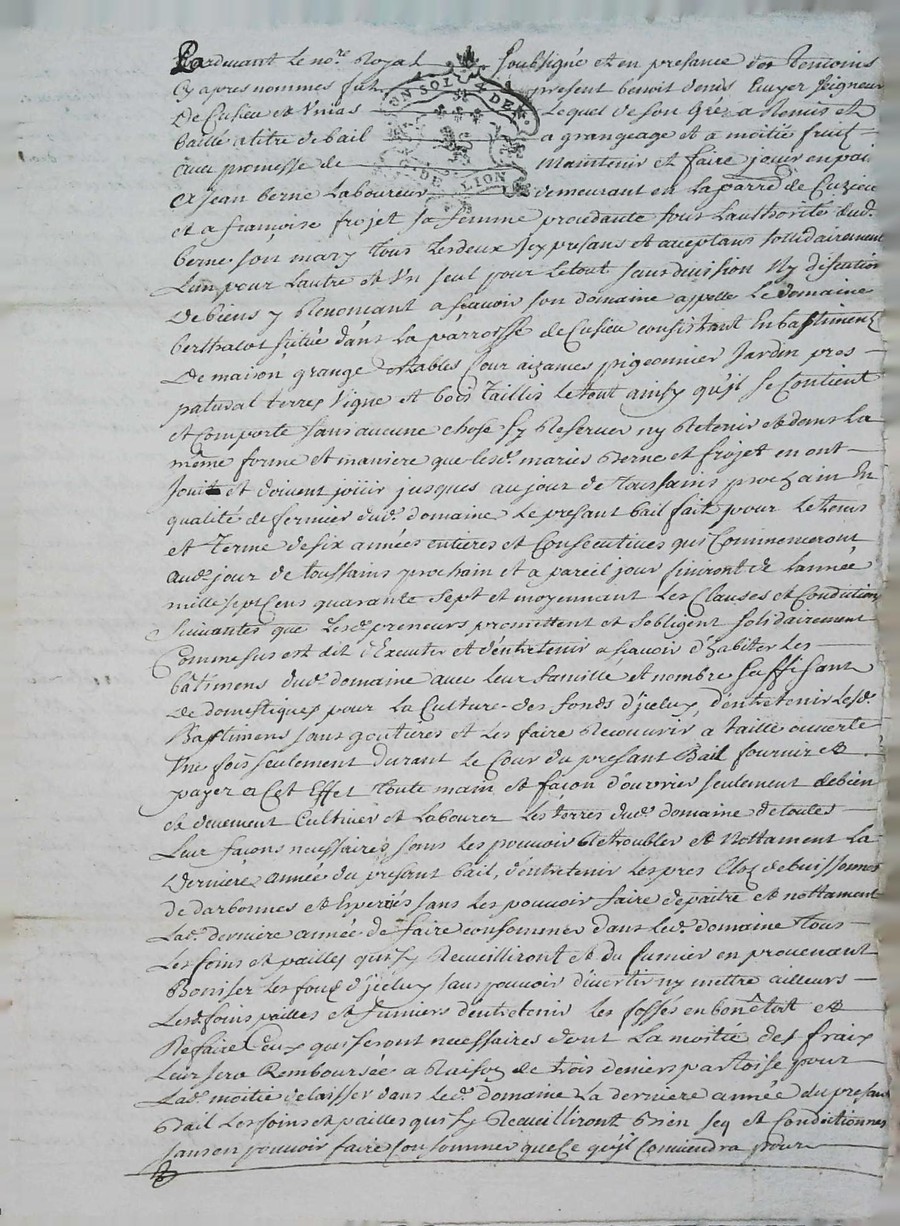 Pardevant le no.re Royal Soubsigné et en presance des temoins
Cy apres nommes fut present benoit denis Ecuyer Seigneur
De Cusieu et Unias Lequel de son Gré a Remis et
baille a titre de bail a grangeage et a moitié fruit
avec promesse de Maintenir et faire jouir en paix
a jean berne Laboureur demeurant en la parr.e de Cuzieu
et a francoise frojet sa femme procedante sous Lauthorité dud.
berne son mary tous Lesdeux icy presans et aceptans sollidairement
Lun pour Lautre et Un seul pour Letout sans division Ny discution
De biens y Renoncant a scavoir son domaine appelle Le domaine
berthalot scitué dans la parroisse de Cusieu consistant En bastimens
De maison grange Estables Cour aizances pigeonnier Jardin pres
patural terres Vigne et bois Taillis Letout ainsy qu'jl se Contient
et Comporte sans aucune chose sy Reserver ny Retenir et dans La
même forme et maniere que Lesd. mariés Berne et frojet en ont
Jouit et doivent joüir jusques au jour de toussains prochain En
qualité de fermier dud. domaine Le presant bail fait pour Le tems
et Terme desix années entieres et Consecutives qui Commenceront
aud. jour de toussains prochain et a pareil jour finiront de Lannée
mille sept Cens quarante sept et moyennant Les Clauses et Condition
Suivantes que Lesd. preneurs promettent et sobligent solidairement
Comme sus est dit d'Executer et d'entretenir a scavoir d'habiter Les
bâtimens dud. domaine avec Leur famille et nombre suffisant
De domestiques pour La Culture des fonds d'jcelux, d'entretenir Lesd.
Bastimens sans goutieres et Les faire Recouvrir a taille ouverte
Une fois seulement durant Le Cour du presant Bail fournir et
payer a Cet Effet toute main et façon d'ouvrier seulement de bien
et duement Cultiver et Labourer Les terres dud. domaine de toutes
Leur façons necessaires sans Les pouvoir detroubler et Nottament La
Derniere année du presant bail, d'entretenir Les pres Clos de buissonnes
de darbonnes et sans Les pouvoir faire depaitre et nottament
Lad. derniere année de faire consommer dans Led. domaine tous
Les foins et pailles qui sy Recueilliront et du fumier en provenant
Boniser Les fonz d'jcelux sans pouvoir divertir ny mettre ailleurs
Lesd. foins pailles et fumiers d'entretenir Les fossés en bon êtat et
Refaire Ceux qui seront necessaires dont La moitié des fraix
Leur sera Remboursée a Raison de trois deniers par toise pour
Lad. moitié de laisser dans Led. domaine La derniere année du presan
Bail Les foins et pailles qui sy Recueilliront Bien seq et Conditionnes
sans en pouvoir faire Consommer que Ce qu'jl Conviendra pour